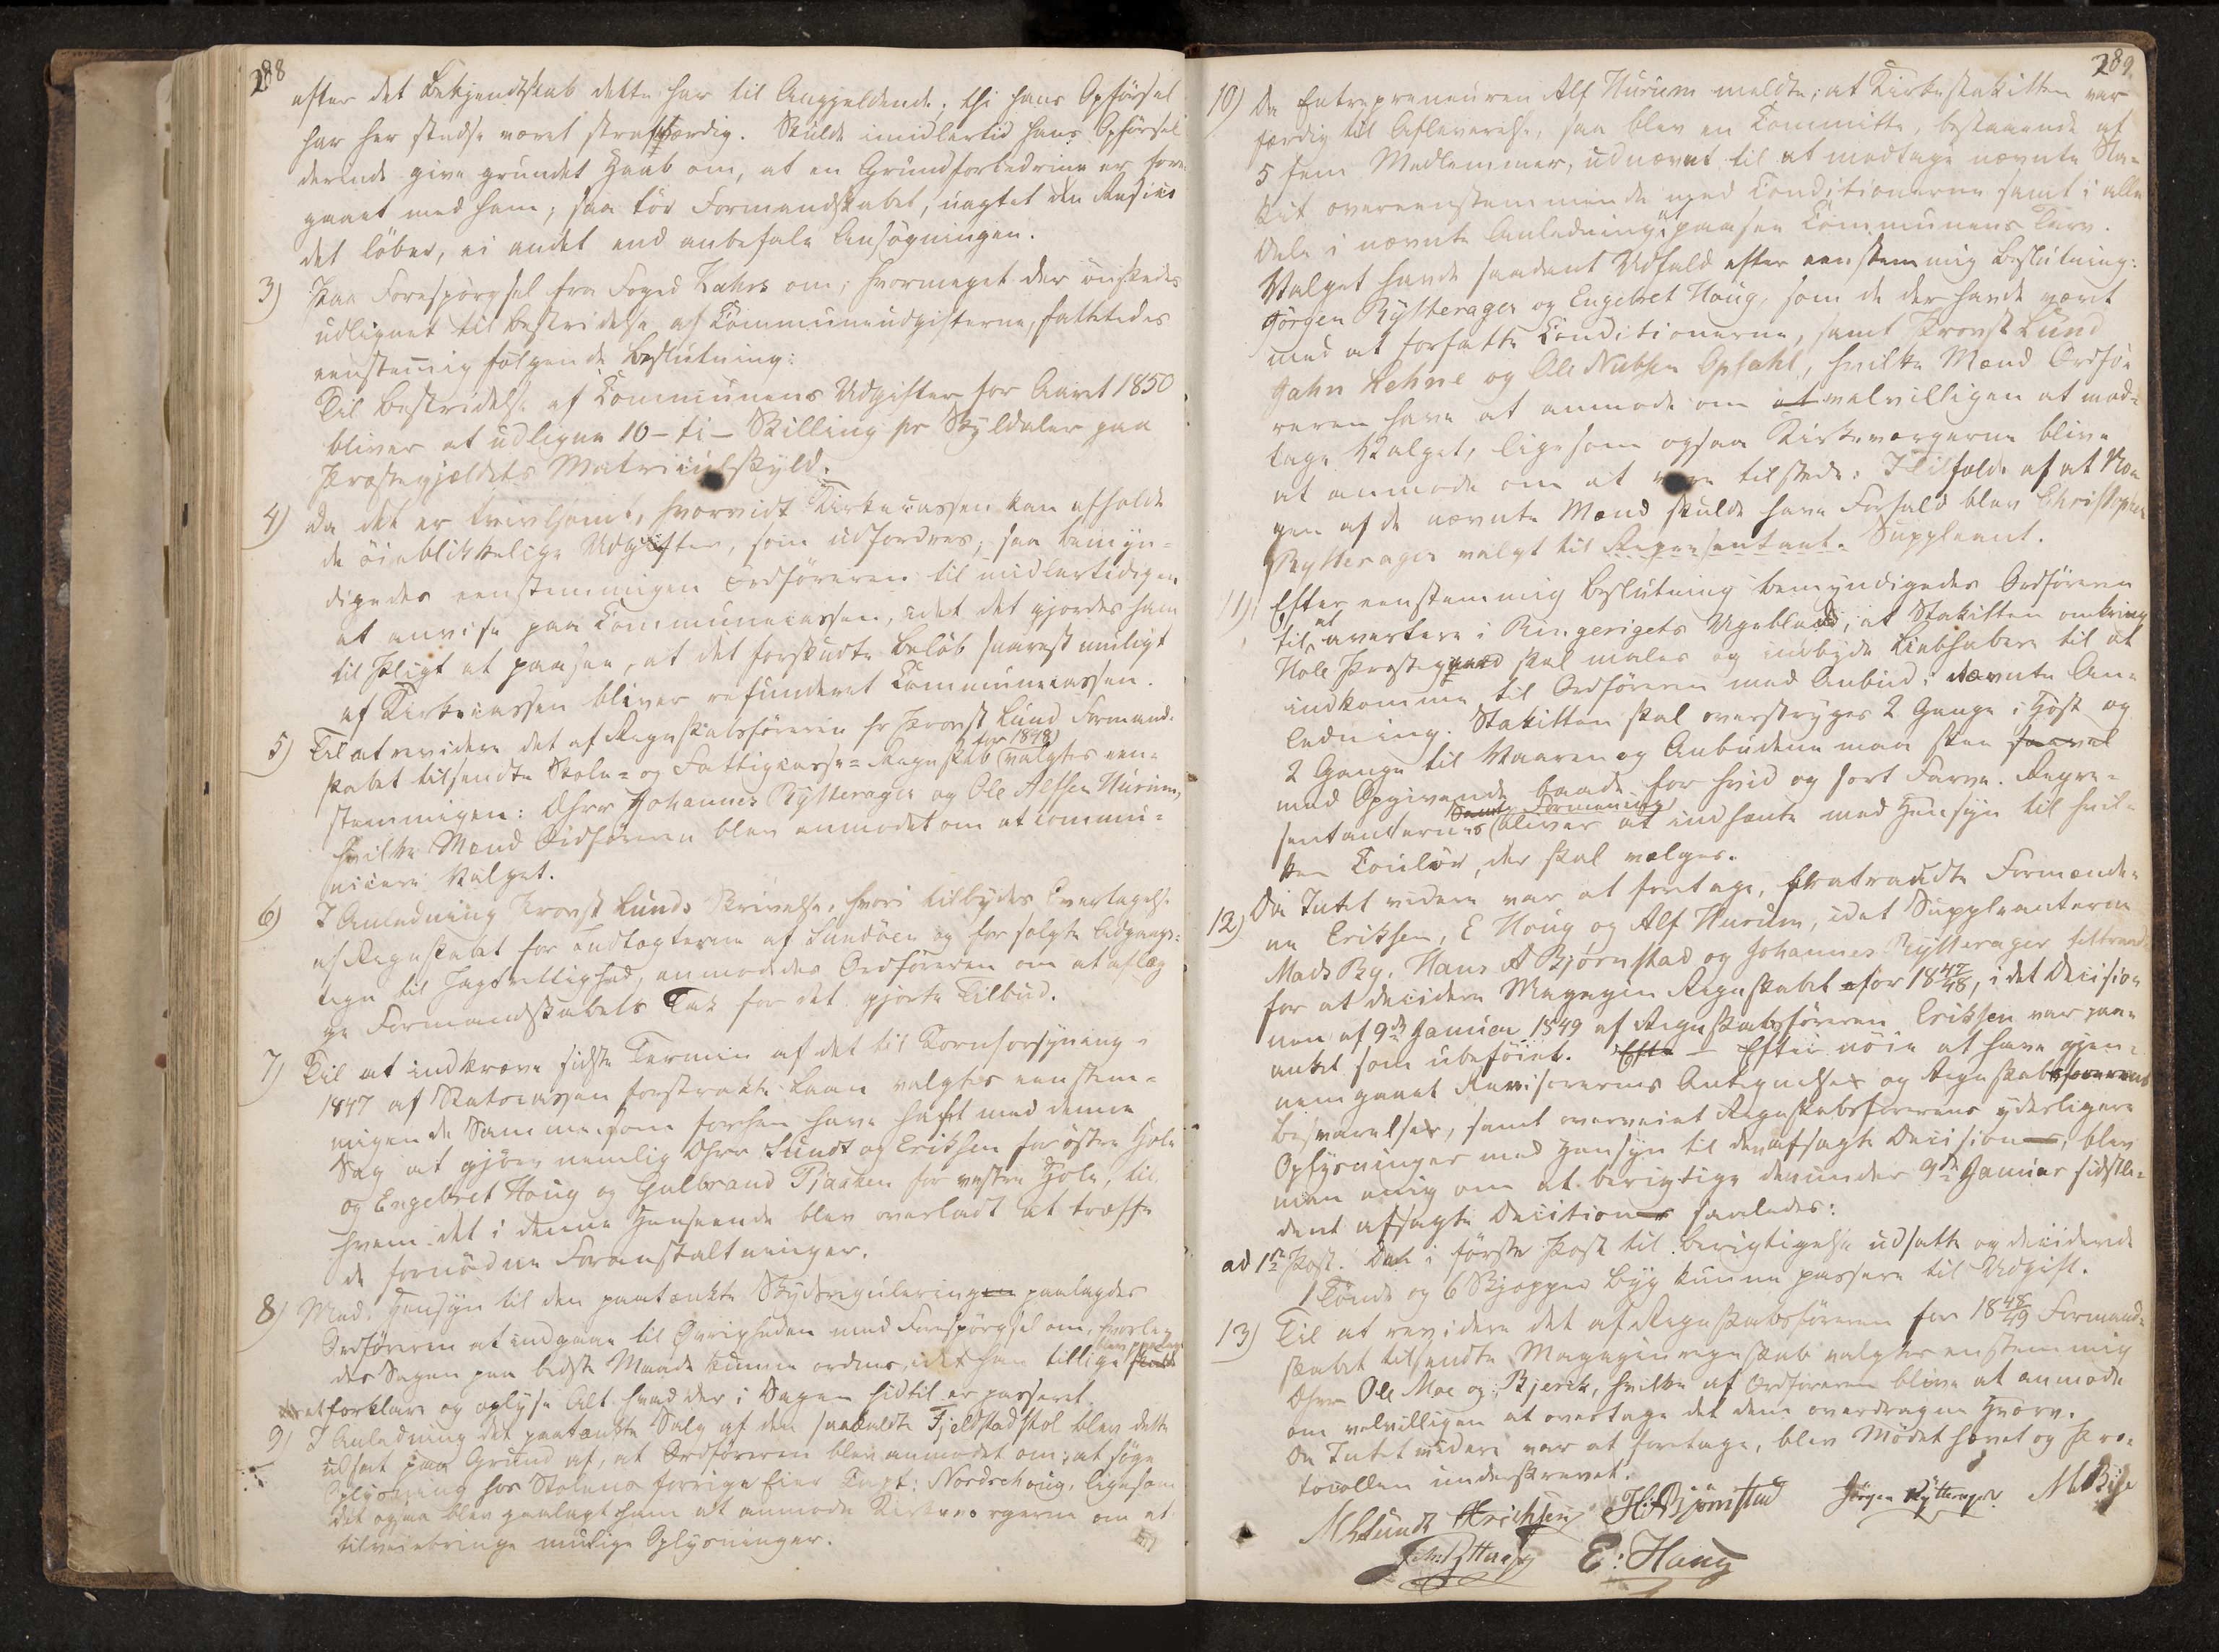 288
efter det Bekjendtskab dette har til Angjældende. thi hans Opførsel
har her stedse været straffværdig. Skulde imidlertid hans Opførsel
derinde give grundet Haab om, at en Grundforbedring er fore-
gaaet med ham; saa tör Formandskabet, uagtet den Risico
det löber, ei andet end anbefale Ansøgningen.
3) Paa Forespörgsel fra Foged Kahrs om, hvormeget der önskedes
udlignet til Bestridelse af Communeudgifterne, fattedes
eenstemig fölgende Beslutning:
Til Bestridelse af Communens Udgifter for Aaret 1850
bliver at udligne 10 - ti - Skilling pr Skylddaler paa
Præstegjældets Matriculskyld.
4) Da det er tvivlsomt, hvorvidt Kirkecassen kan afholde
de öieblikkelige Udgifter, som udfordres, saa bemyn-
digedes eenstemmigen Ordföreren til midlertidigen
at anvise paa Communecassen, idet det gjordes ham
til Pligt at paasee, at det forskudte Belöb snarest muligt
af Kirkecassen bliver refunderet Communecassen.
5) Til at revidere det af Regnskabsföreren Hr Provst Lund Formand-
skabet tilsendte Skole- og Fattigcasse-Regnskab (for 1848) valgtes een-
stemmigen: Dhrr Johannes Rytterager og Ole Alfsen Hurum,
hvilke Mænd Ordföreren blev anmodet om at commu-
nicere Valget.
6) I Anledning Provst Lunds Skrivelse, hvori tilbydes Overtagelse
af Regnskabet for Indtægterne af Sundöen og for solgte Adgangs-
tegn til Jagtrettighed, anmodedes Ordföreren om at aflæg-
ge Formandskabets Tak for det gjorte Tilbud.
7) Til at indkræve sidste Termin af det til Kornforsyning i
1847 af Statscassen forstrakte Laan valgtes eenstem-
migen de Samme, som forhen have haft med denne
Sag at gjöre nemlig Dhrr Sundt og Eriksen for östre Hole
og Engebret Houg og Gulbrand Pjaaken for vestre Hole, til
hvem det i denne Henseende blev overladt at træffe
de fornödne Foranstaltninger.
8) Med Hensyn til den paatænkte Skydsregulering paalagdes
Ordföreren at indgaae til Øvrigheden med Forespörgsel om, hvorle-
des Sagen paa bedste Maade kunne ordnes, idet han tillige
at forklare og oplyse Alt hvad der i Sagen hidtil er passeret.
9) I Anledning det paatænkte Salg af den saakaldte Fjeldstadstol blev dette
udsat paa Grund af, at Ordföreren blev anmodet om at söge
Oplysning hos Stolens forrige Eier Capt: Nordschoug, ligesom
det ogsaa blev paalagt ham at anmode Kirkeværgerne om at
tilveiebringe mulige Oplysninger.
289.
10) Da Entrepreneuren Alf Hurum meldte, at Kirkestakittet var
færdig til Afleverelse, saa blev en Committe, bestaaende af
5 fem Medlemmer, udnævnt til at modtage nævnte Sta-
kit overeenstemmende med Conditionerne samt i alle
Dele i nævnte Anledning paasee Communens Tarv.
Valget havde saadant Udfald efter eenstemmig Beslutning:
Jörgen Rytterager og Engebret Houg, som de der havde været
med at forfatte Conditionerne, samt Provst Lund
Jahn Lehne og Ole Nubsen Opsahl, hvilke Mænd Ordfö-
reren have at anmode om velvilligen at mod-
tage Valget, ligesom ogsaa Kirkeværgerne blive
at anmode om at være tilstede. I Tilfælde af at No-
gen af de nævnte Mænd skulde have Forfald blev Christopher
Rytterager valgt til Repræsentant-Suppleant.
11) Efter eenstemmig Beslutning bemyndigedes Ordföreren
til at avertere i Ringerigets Ugeblad, at Stakittet omkring
Hole Præstegaard skal males og indbyde Liebhabere til at
indkomme til Ordföreren med Anbud i nævnte An-
ledning. Stakittet skal overstryges 2 Gange i Höst og
2 Gange til Vaaren og Anbudene maa skee
med Opgivende baade for hvid og sort Farve. Repræ-
sentanternes Formening bliver at indhente med Hensyn til hvil-
ken Couleur, der skal vælges.
12) Da Intet videre var at foretage, fratraadte Formænde-
ne Eriksen, E Houg og Alf Hurum, idet Suppleanterne
Mads By, Hans A Bjørnstad og Johannes Rytterager tiltraad
for at decidere Magazin Regnskabet for 18 47/48, i det Decisio-
nen af 9de Januar 1849 af Regnskabsföreren Eriksen var paa-
anket som ubeföiet. Efter nöie at have gjen-
nemgaaet Revisorernes Antegnelser og Regnskabsförerens
Besvarelser, samt overveiet Regnskabsförerens yderligere
Oplysninger med Hensyn til den afsagte Decision, blev
man enig om at berigtige den under 9de Januar sidstle-
dent afsagte Decision saaledes:
ad 1ste Post. Det i förste Post til Berigtigelse udsatte og deciderede
1 Tönde og 6 Skjepper Byg kunne passere til Udgift.
13) Til at revidere det af Regnskabsföreren for 18 48/49 Formand-
skabet tilsendte Magazinregnskab valgtes enstemmig
Dhrr Ole Moe og Bjerik, hvilke af Ordföreren blive at anmode
om velvilligen at overtage det dem overdragne Hverv.
Da Intet videre var at foretage, blev Mödet hævet og Pro-
tocollen underskrevet.
Sundt Erichsen H: Bjørnstad Jörgen Rytterager M By
Joh: Rytterag E: Houg